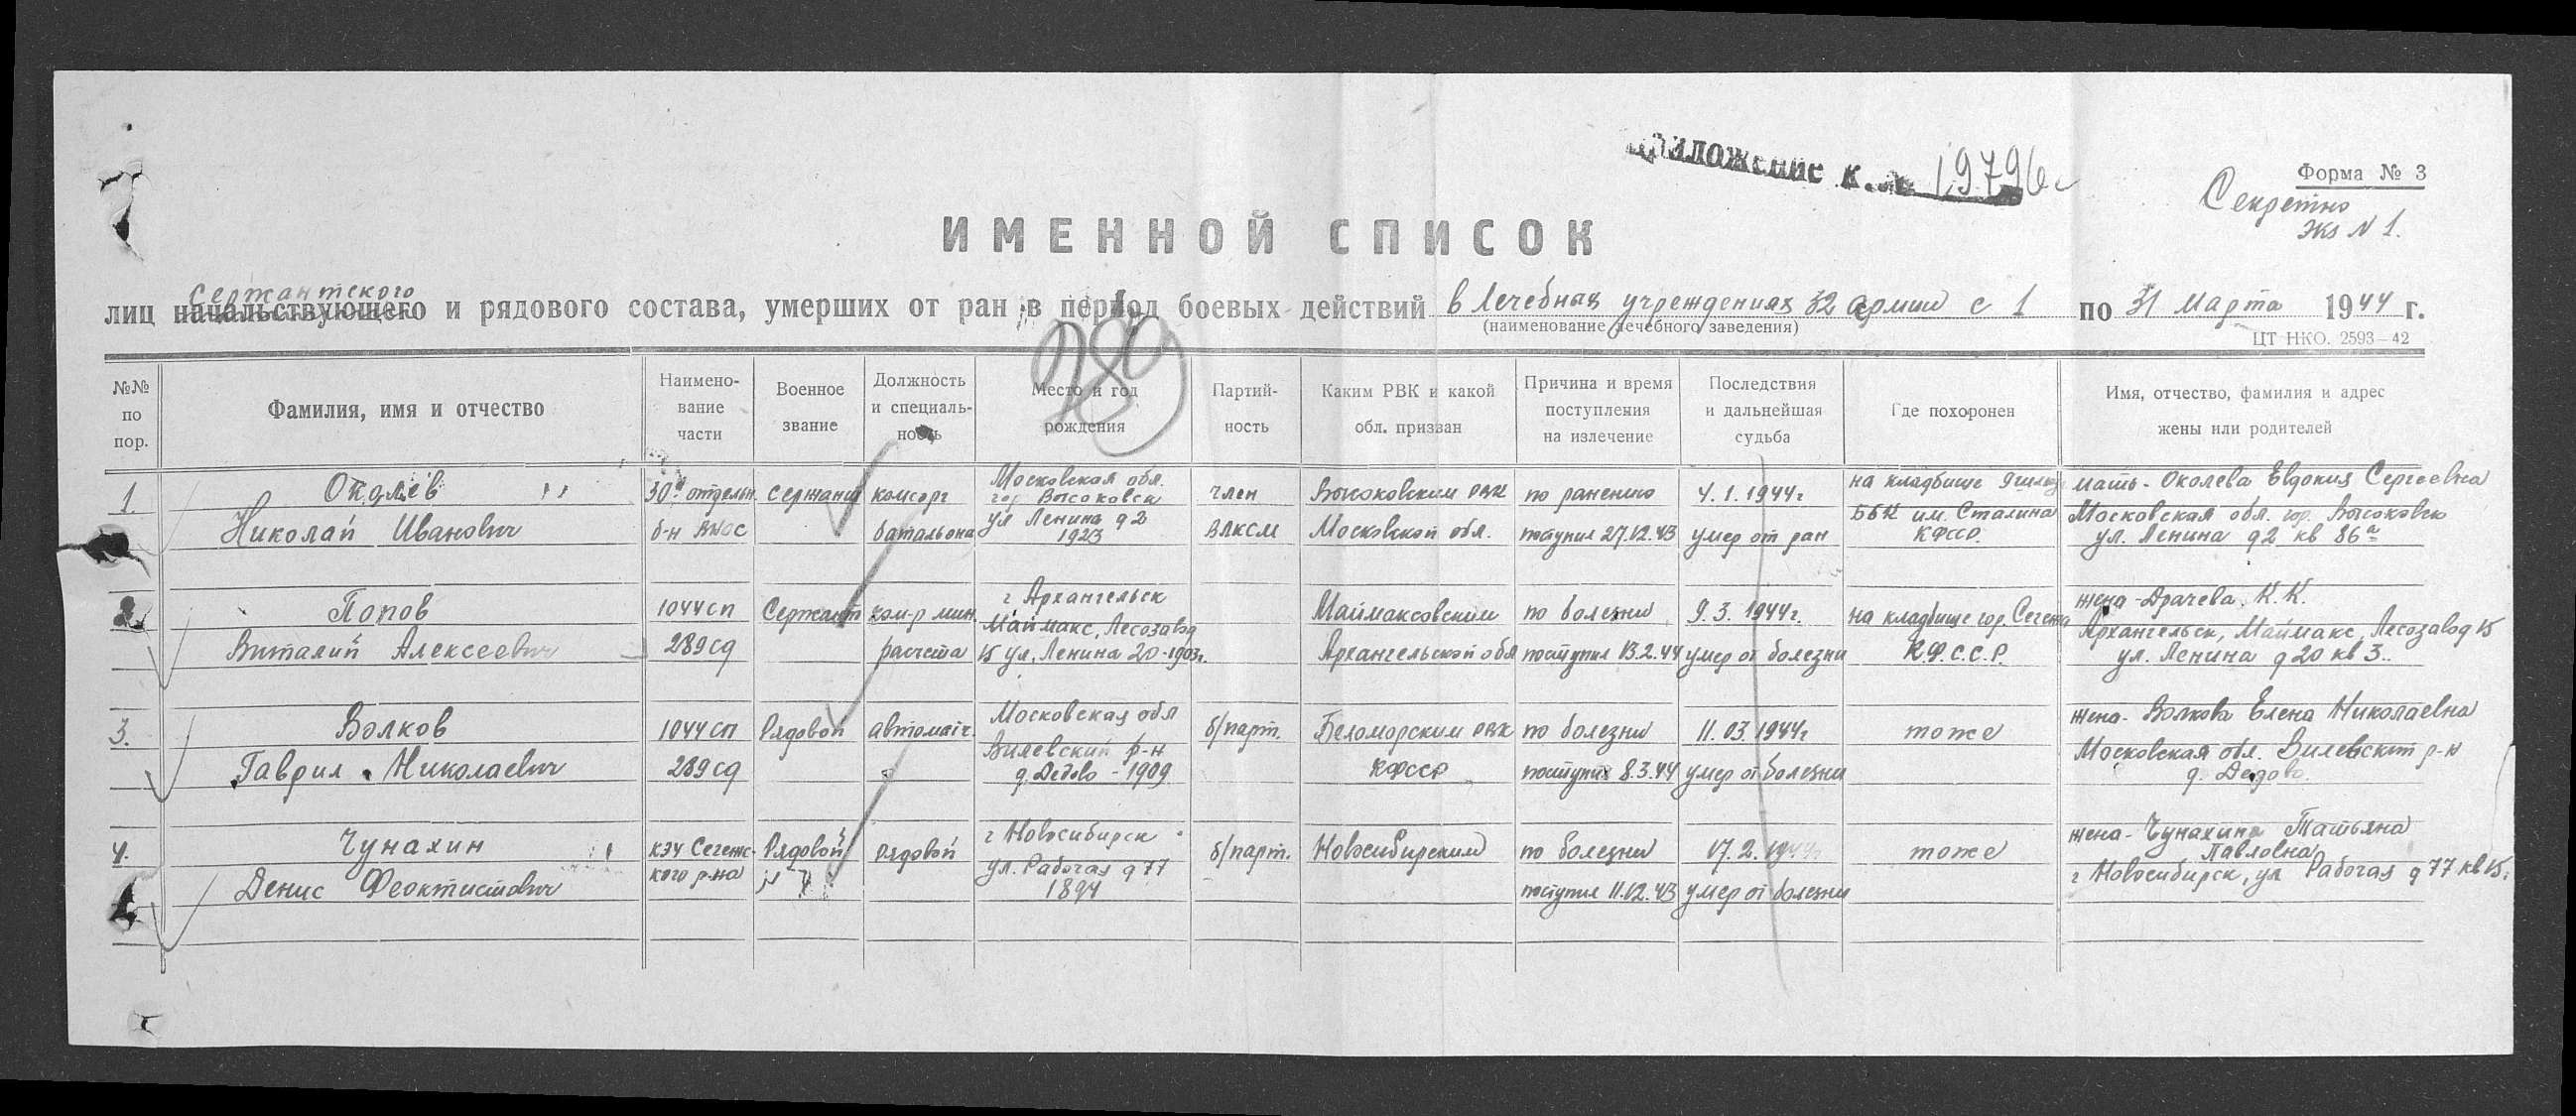 Приложение к № 19796с
Форма № 3
Секретно
Экз N 1.
ИМЕННОЙ СПИСОК
Сержантского
лиц начальствующего и рядового состава, умерших от ран в период боевых действий в Лечебных учреждениях 32 армии с 1 по 31 Марта 1944 г.
(наименование лечебного заведения)
ЦТ НКО. 2593—42
289
№№ по пор.
Фамилия, имя и отчество
Наимено-вание части
Военное звание
Должность и специаль-ность
Место и год рождения
Партий-ность
Каким РВК и какой обл. призван
Причина и время поступления на излечение
Последствия и дальнейшая судьба
Где похоронен
Имя, отчество, фамилия и адрес жены или родителей
1.
Околев
Николай Иванович
30й отдельн.
б-н ВНОС
сержант
комсорг
батальона
Московская обл.
гор Высоковск
ул Ленина д 2
1923
член
ВЛКСМ
Высоковским РВК
Московской обл.
по ранению
поступил 27.12.43
4.1.1944г
умер от ран
на кладбище 9 шлюз
ББК им. Сталина
КФССР.
мать - Околева Евдокия Сергеевна
Московская обл. гор. Высоковск
ул. Ленина д 2 кв 86а
2.
Попов
Виталий Алексеевич
1044 сп
289 сд
Сержант
ком-р мин.
расчета
г Архангельск
Маймакс, Лесозавод
15 ул. Ленина 20-1903г.
Маймаксовским
Архангельской обл
по болезни
поступил 13.2.44
9.3.1944г.
умер от болезни
на кладбище гор. Сегежа
К.Ф.С.С.Р.
жена - Драчева К.К.
Архангельск, Маймакс, Лесозавод 15
ул. Ленина д 20 кв 3.
3.
Волков
Гаврил Николаевич
1044 сп
289 сд
Рядовой
автоматч.
Московская обл
Вилевский р-н
д. Дедово - 1909
б/парт.
Беломорским РВК
КФССР
по болезни
поступил 8.3.44
11.03.1944г
умер от болезни
тоже
жена - Волкова Елена Николаевна
Московская обл. Вилевский р-н
д. Дедово.
4.
Чунахин
Денис Феоктистович
КЭЧ Сегежс-
кого р-на
Рядовой
рядовой
г Новосибирск
ул. Рабочая д 77
1894
б/парт.
Новосибирским
по болезни
поступил 11.12.43
17.2.1944г
умер от болезни
тоже
жена - Чунахина Татьяна
Павловна
г Новосибирск, ул Рабочая д 77 кв 15.